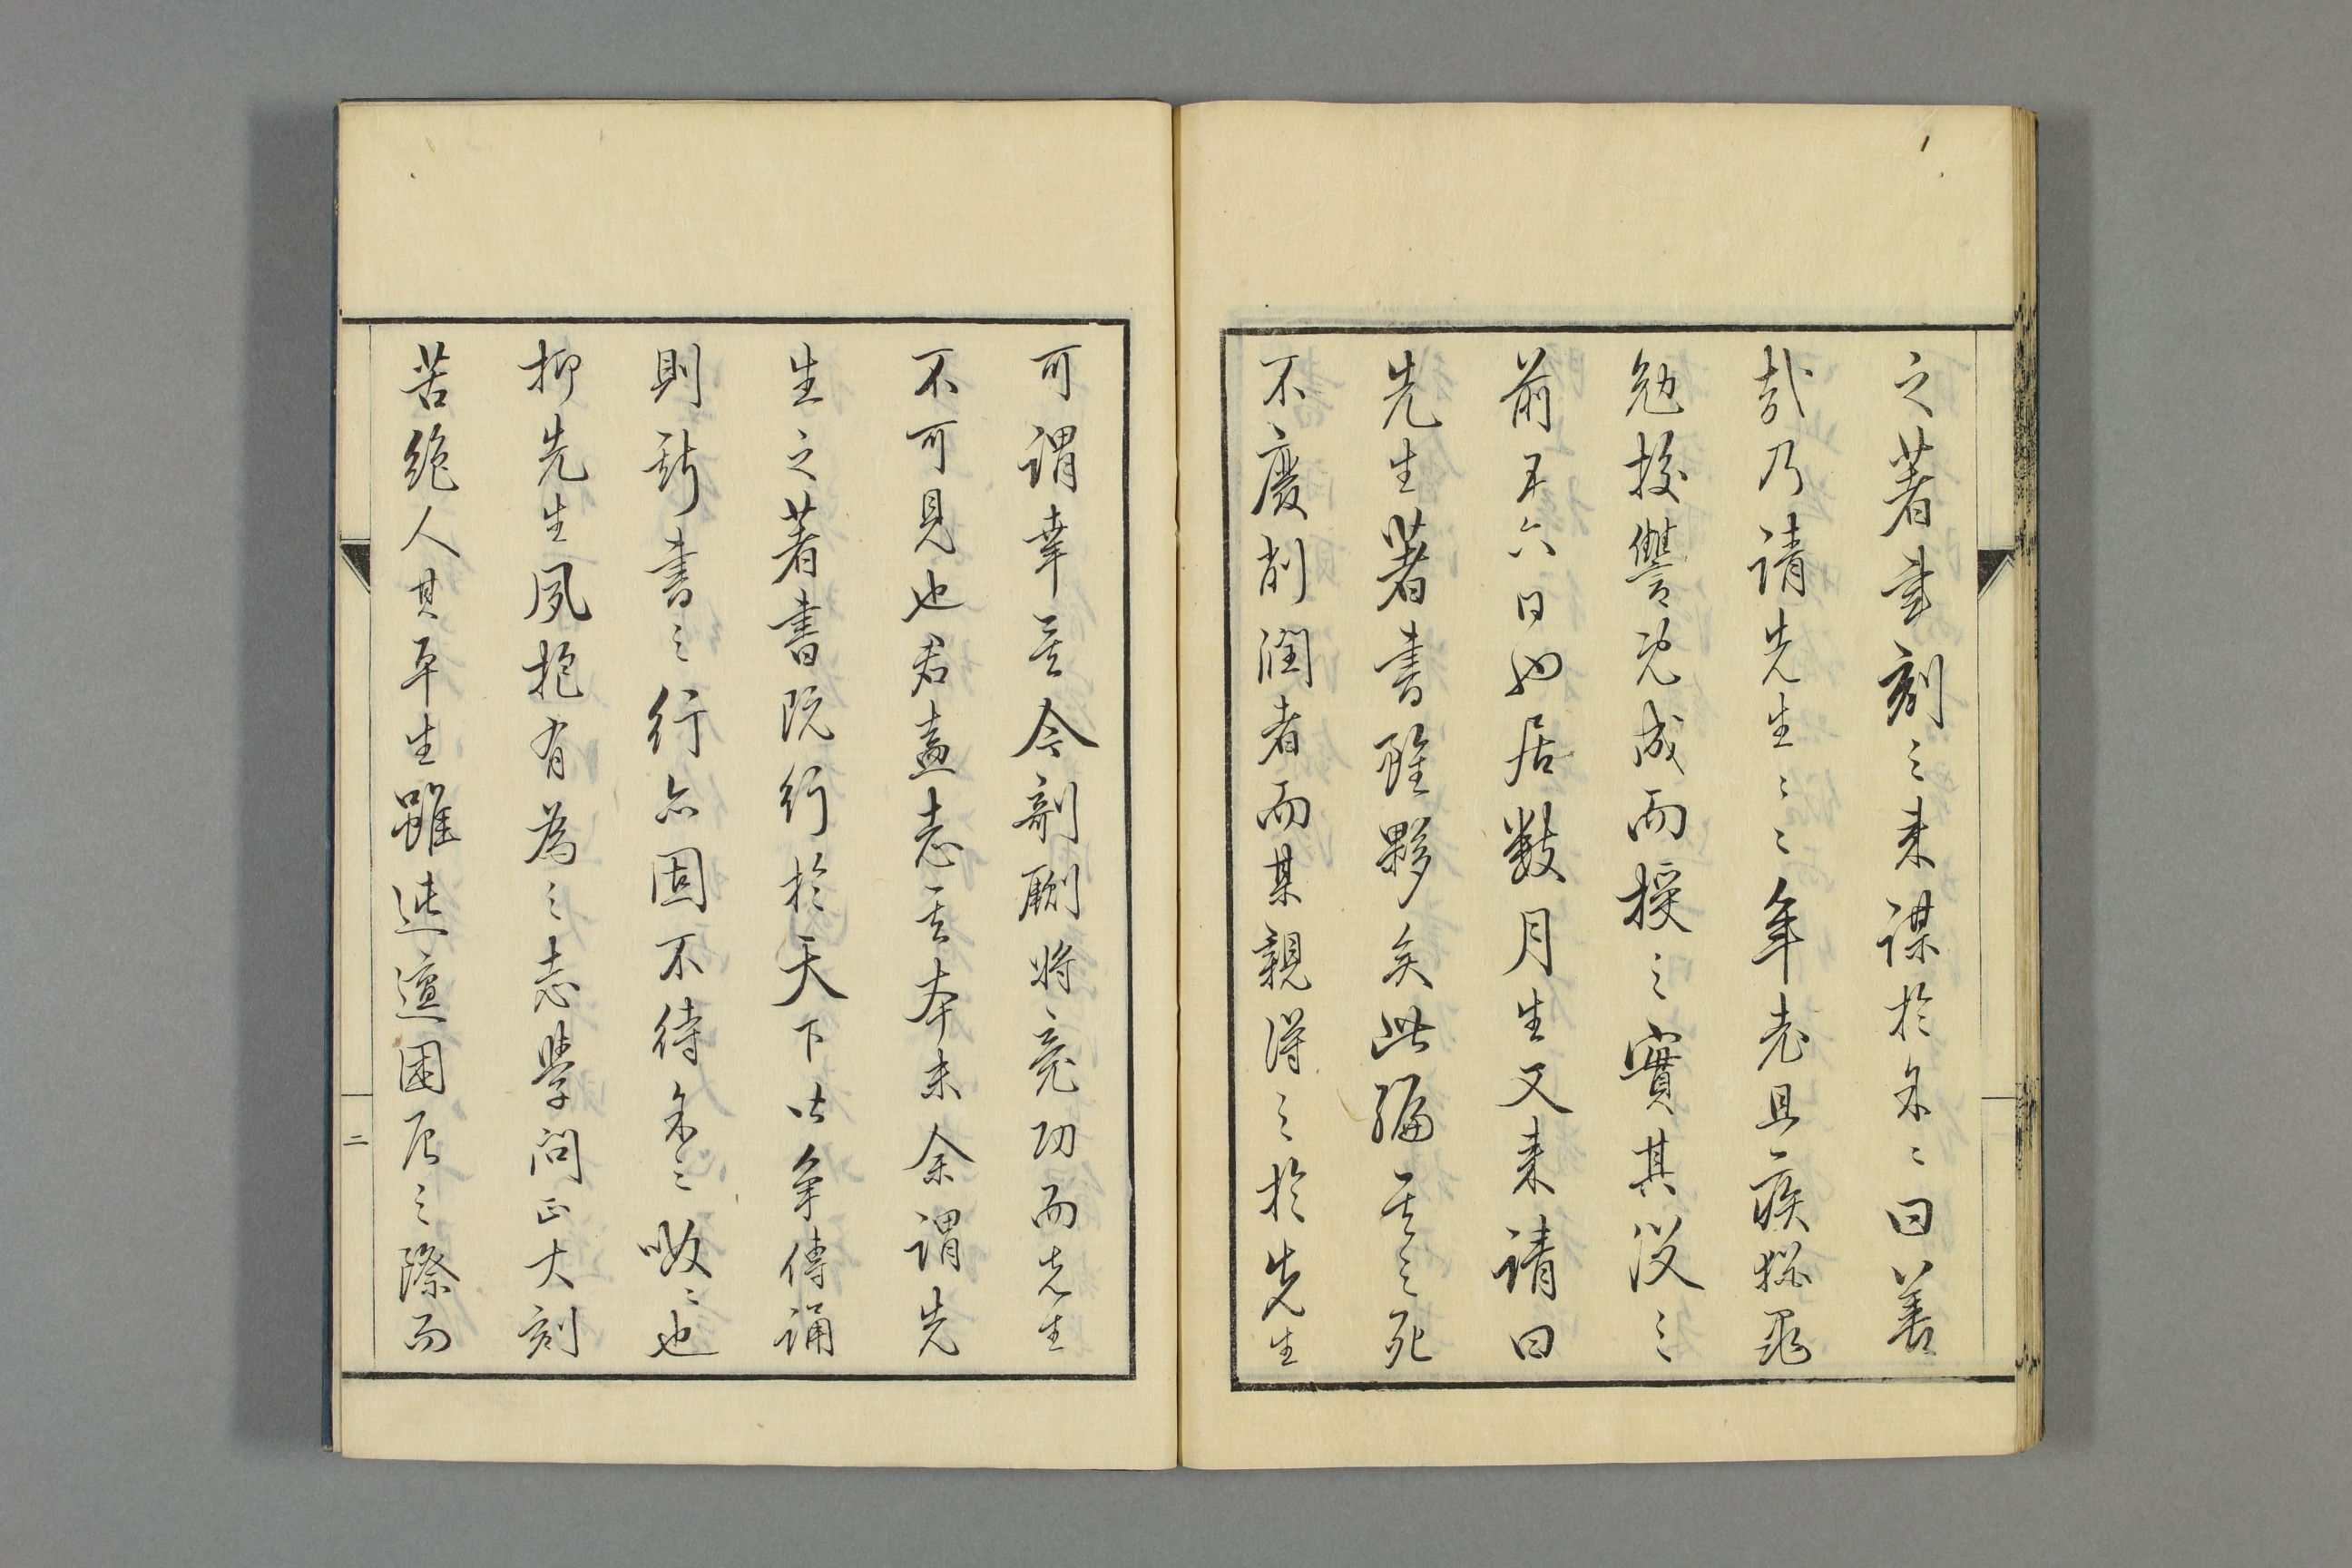 之著書刻之来謀於余〻曰善
哉乃請先生〻〻年老且疾猶黽
勉挍讐既成而授之實其没之
前五六日也居數月生又来請曰
先生著書雖夥矣此編其之死
不廢削潤者而某親得之於先生
可謂幸矣今剞劂将竟功而先生
不可見也君盍志其本末余謂先
生之著書既行於天下古争傳誦
則新書之行亦固不待余之呶〻也
抑先生夙抱有為之志學問正大刻
苦絶人其平生雖迍邅困厄之際而
二